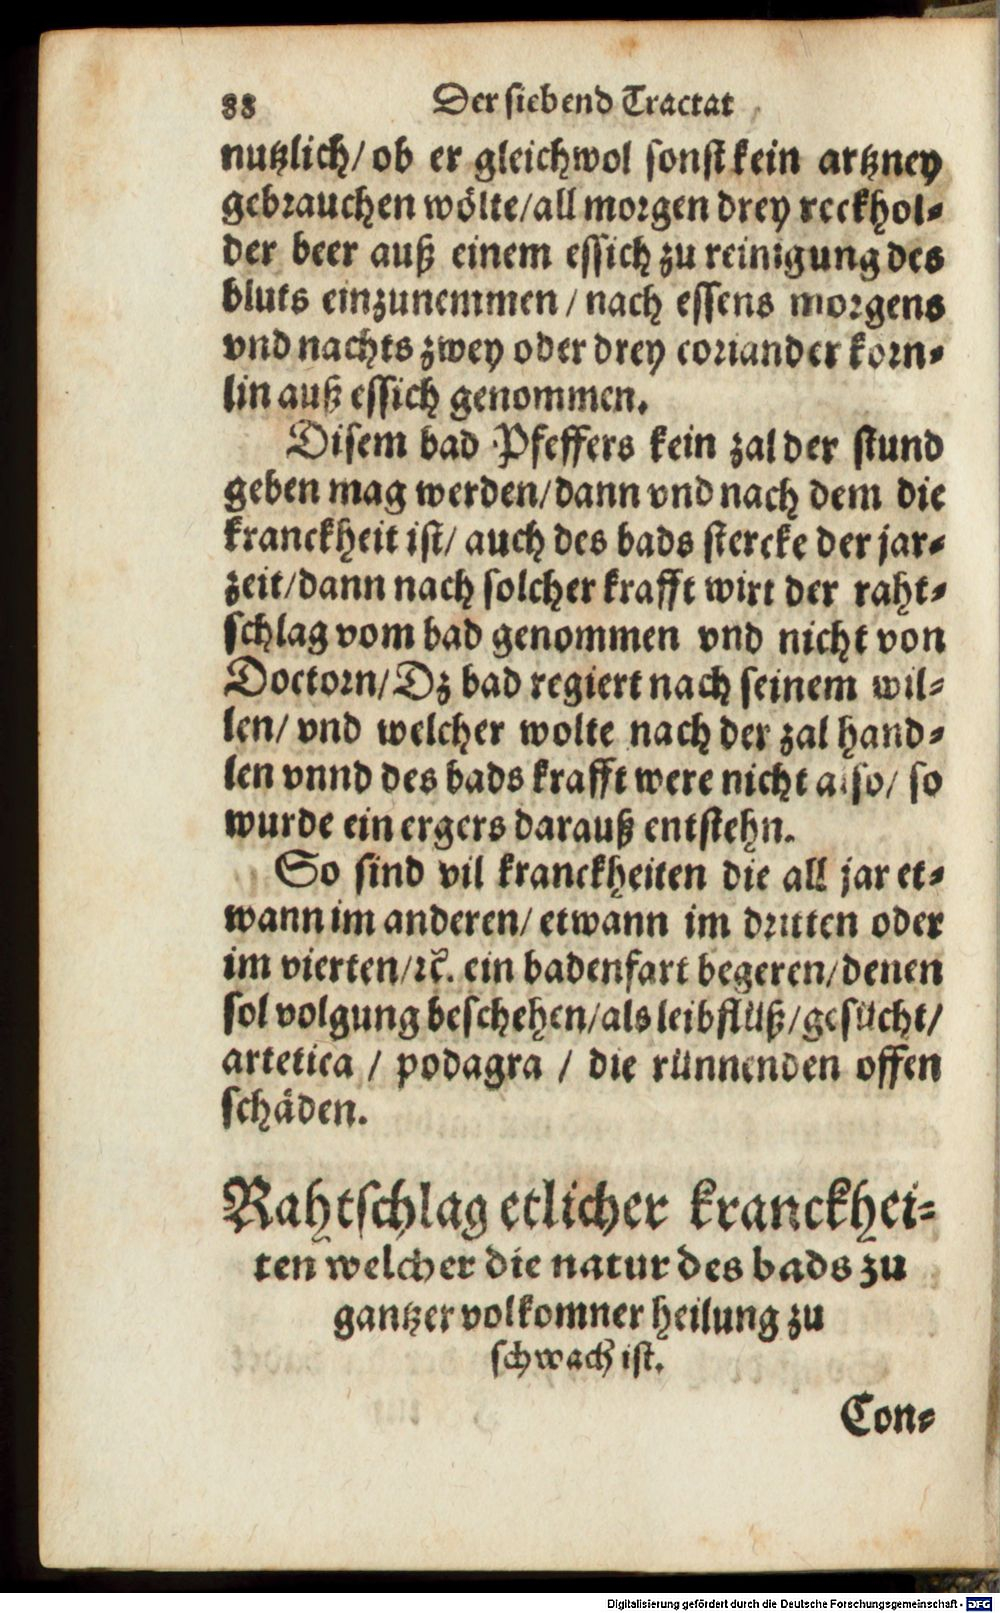 88 Der siebend Tractat
nutzlich/ ob er gleichwol sonst kein artzney
gebrauchen wölte/ all morgen drey reckhol-
der beer auß einem essich zu reinigung des
bluts einzunemmen / nach essens morgens
vnd nachts zwey oder drey coriander korn-
lin auß essich genommen.
Disem bad Pfeffers kein zal der stund
geben mag werden/ dann vnd nach dem die
kranckheit ist/ auch des bads stercke der jar-
zeit/ dann nach solcher krafft wirt der raht-
schlag vom bad genommen vnd nicht von
Doctorn/ Dz bad regiert nach seinem wil-
len/ vnd welcher wolte nach der zal hand-
len vnnd des bads krafft were nicht also/ so
wurde ein ergers darauß entstehn.
So sind vil kranckheiten die all jar et-
wann im anderen/ etwann im dritten oder
im vierten/ ꝛc. ein badenfart begeren/ denen
sol volgung beschehen/ als leibflüß/ gesücht/
artetica / podagra / die rünnenden offen
schäden.
Rahtschlag etlicher kranckhei-
ten welcher die natur des bads zu
gantzer volkomner heilung zu
schwach ist.
Con-
Digitalisierung gefördert durch die Deutsche Forschungsgemeinschaft - DFG